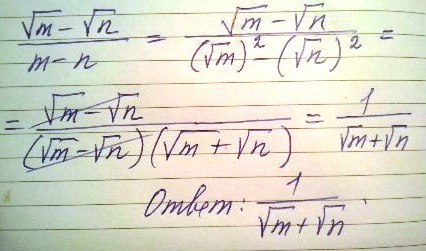 (√m - √n)/(m - n) = (√m - √n)/((√m)² - (√n)²) =
= (√m - √n)/((√m - √n)(√m + √n)) = 1/(√m + √n)
Ответ: 1/(√m + √n).